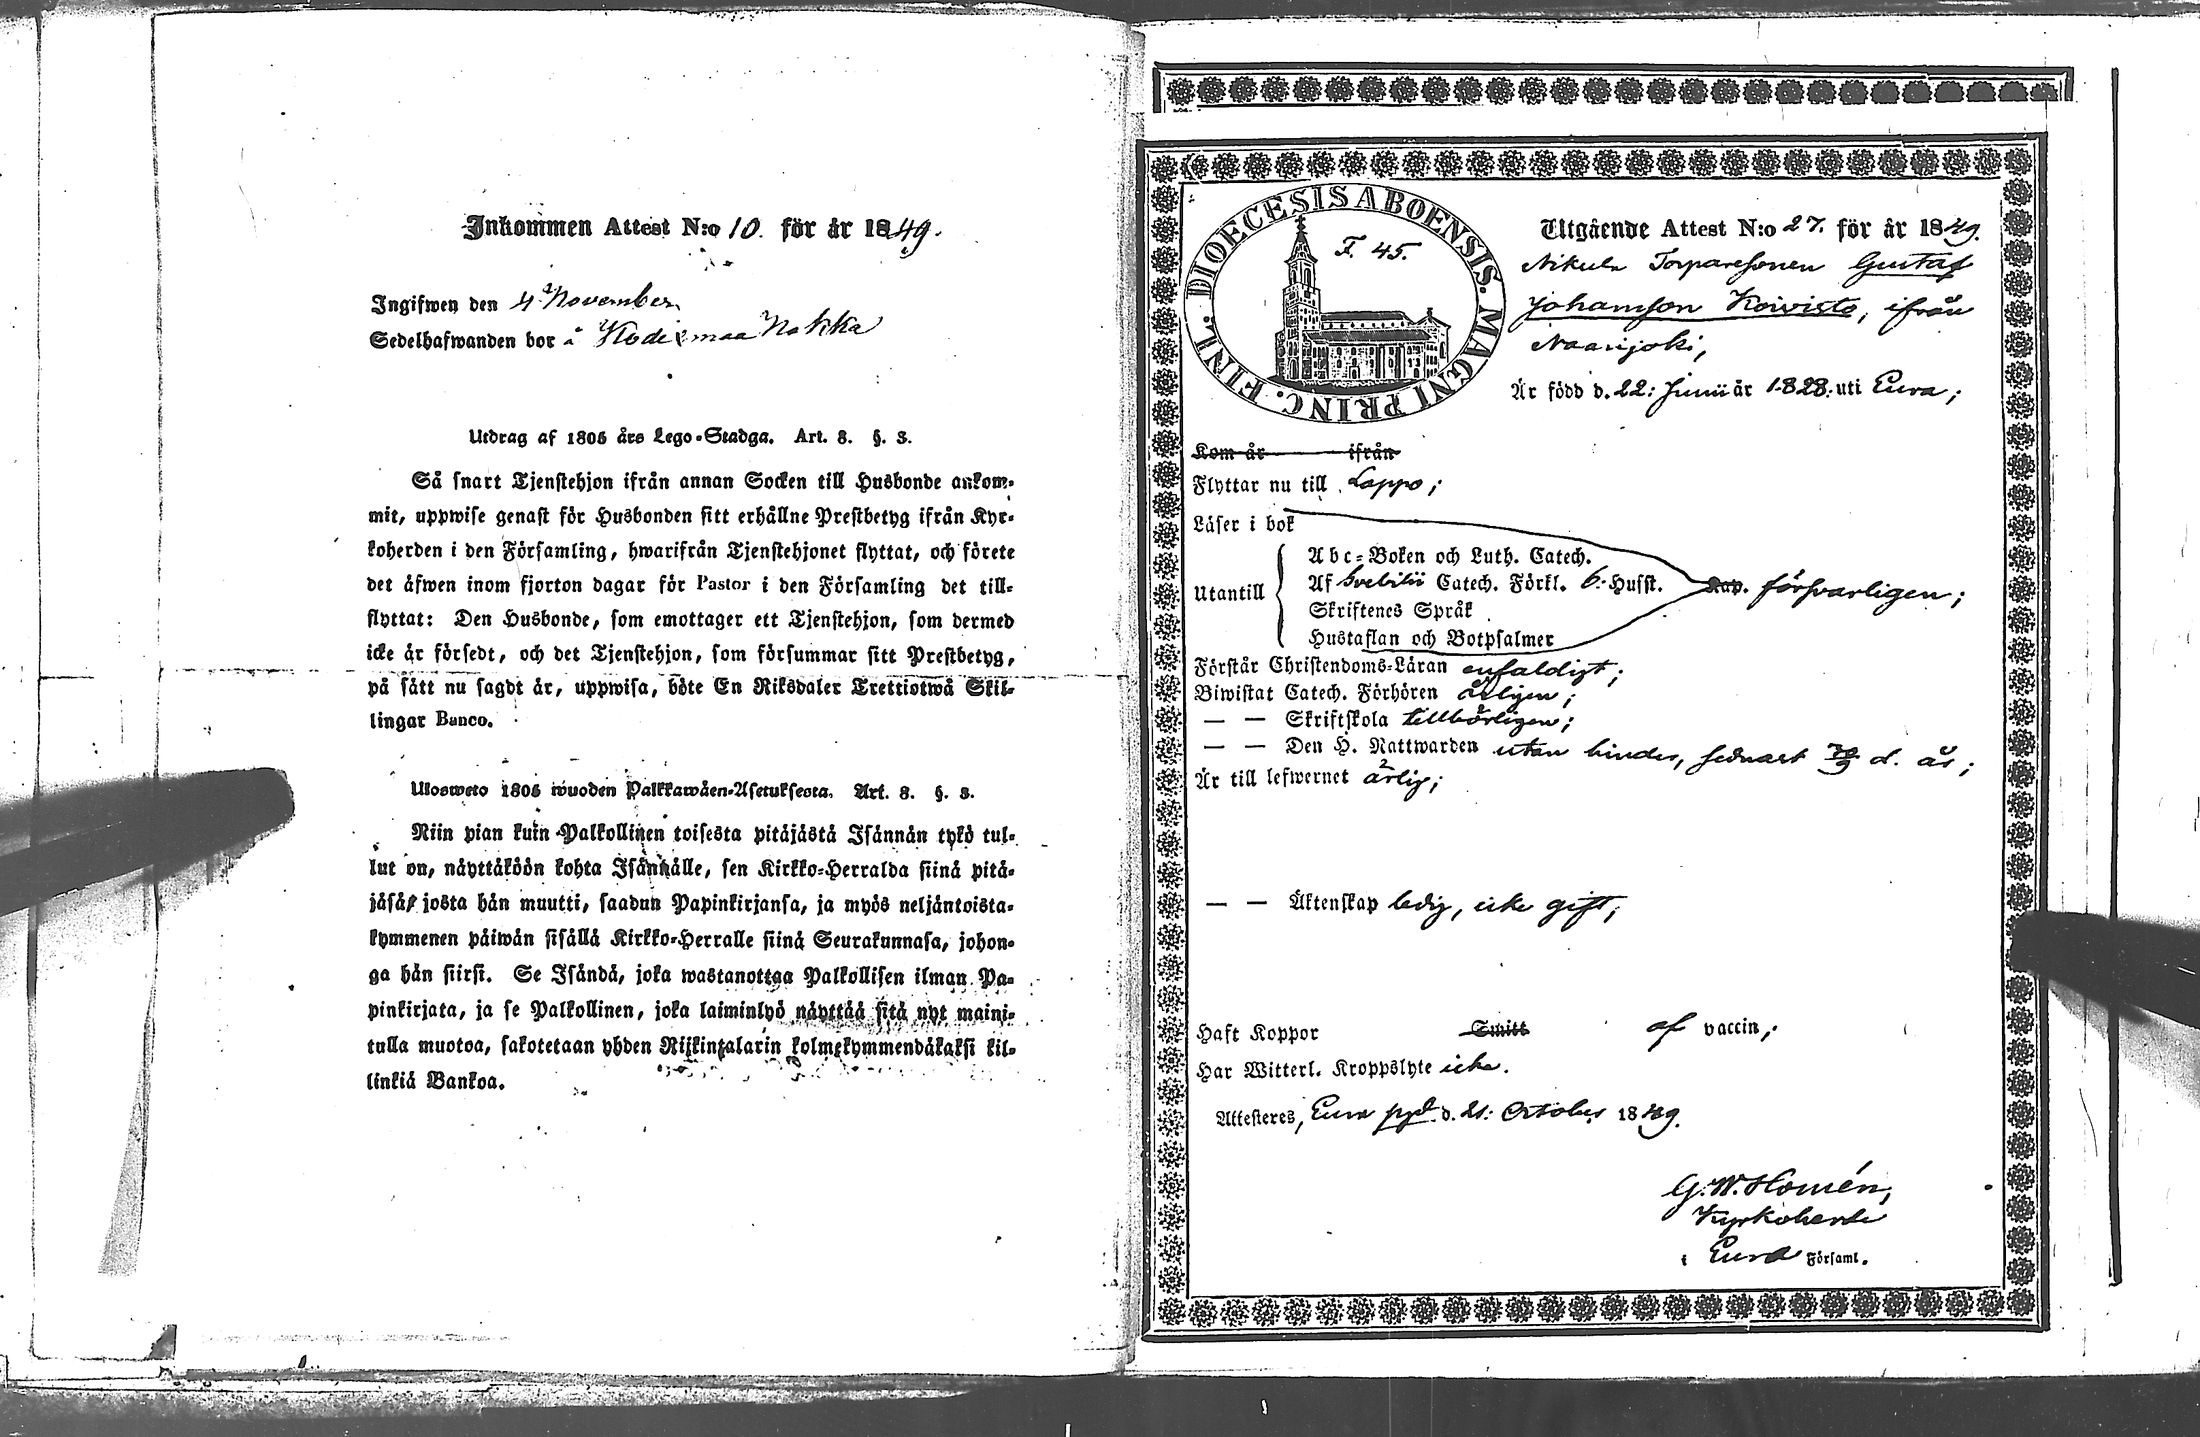 Inkommen Attest N:o 10. för år 1849.
Ingifwen den 4 November
Sedelhafwanden bor å Kodixmaa Nokka
Utdrag af 1805 års Lego-Stadga. Art. 8. §. 3.
Så snart Tjenstehjon ifrån annan Socken till Husbonde ankom-
mit, uppwise genast för Husbonden sitt erhållne Prestbetyg ifrån Kyr-
koherden i den Församling, hwarifrån Tjenstehjonet flyttat, och förete
det äfwen inom fjorton dagar för Pastor i den Församling det till-
flyttat: Den Husbonde, som emottager ett Tjenstehjon, som dermed
icke är försedt, och det Tjenstehjon, som försummar sitt Prestbetyg,
på sätt nu sagdt är, uppwisa, böte En Riksdaler Trettiotwå Skil-
lingar Banco.
Ulosweto 1805 wuoden Palkkawäen-Asetuksesta. Art. 8. §. 3.
Niin pian kuin Palkollinen toisesta pitäjästä Isännän tykö tul-
lut on, näyttäköön kohta Isännälle, sen Kirkko-Herralda siinä pitä-
jäsä, josta hän muutti, saadun Papinkirjansa, ja myös neljäntoista-
kymmenen päiwän sisällä Kirkko-Herralle siinä Seurakunnasa, johon-
ga hän siirsi. Se Isändä, joka wastanottaa Palkollisen ilman Pa-
pinkirjata, ja se Palkollinen, joka laiminlyö näyttää sitä nyt maini-
tulla muotoa, sakotetaan yhden Riikintalarin kolmekymmendäkaksi kil-
linkiä Bankoa.
DIOECESIS ABOENSIS. MAGNI PRINC. FINL.
F. 45.
Utgående Attest N:o 27. för år 1849.
Nikula Torparesonen Gustaf
Johansson Koivisto, ifrån
Naarijoki,
Är född d. 22: Junii år 1828. uti Eura;
Kom år ifrån
Flyttar nu till Lappo;
Läser i bok
Utantill
Abc-Boken och Luth. Catech.
Af Svebilii Catech. Förkl. 6. Husst. Kap. försvarligen;
Skriftenes Språk
Hustaflan och Botpsalmer
Förstår Christendoms-Läran enfaldigt;
Biwistat Catech. Förhören årligen;
— — Skriftskola tillbörligen;
— — Den H. Nattwarden utan hinder, sednast d. år;
Är till lefwernet ärlig;
— — Äktenskap ledig, icke gift;
Haft Koppor Smitt af vaccin;
Har Witterl. Kroppslyte icke.
Attesteres, Eura pgd d. 21: October 1849.
G. W. Homén,
Kyrkoherde
i Eura Församl.